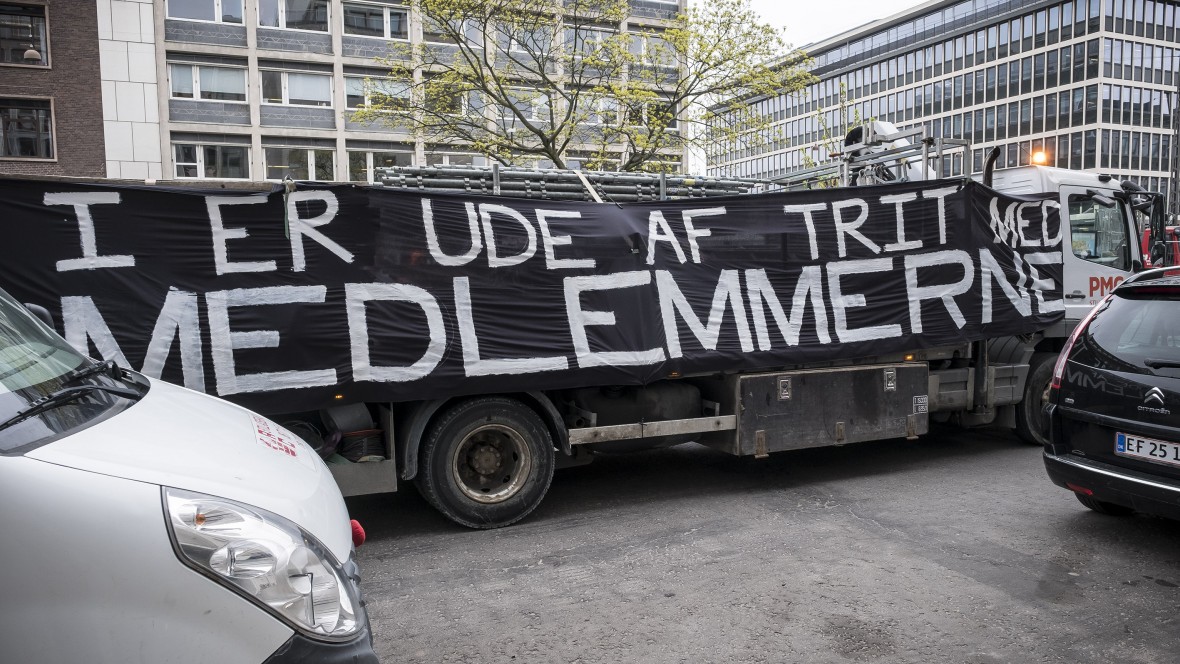 I ER UDE AF TRIT MED
MEDLEMMERNE
PMC
CITROËN
EF 25 1